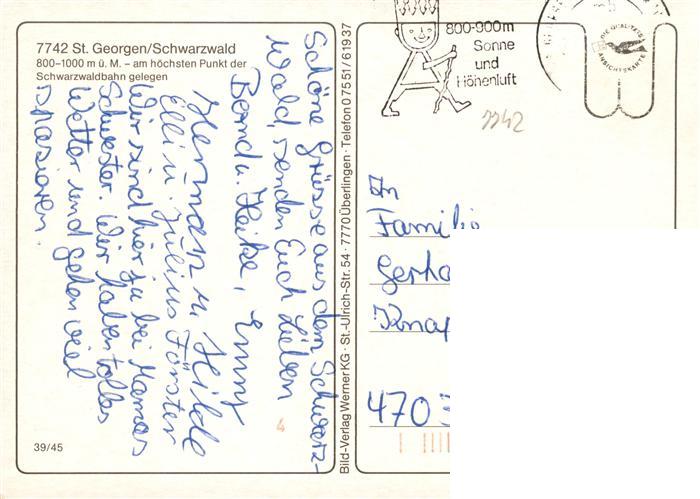 7742 St. Georgen/Schwarzwald
800–1000 m ü. M. – am höchsten Punkt der
Schwarzwaldbahn gelegen
Schöne Grüsse aus dem Schwarz-
wald, senden Euch Lieben
Bernd u. Heike, Emmy
Hermann u. Hilde
Elli u. Julius Förster
Wir sind hier ja bei Mamas
Schwester. Wir haben tolles
Wetter und gehen viel
spazieren.
39/45
4
Bild-Verlag Werner KG · St.-Ulrich-Str. 54 · 7770 Überlingen · Telefon 07551/61937
800-900m
Sonne
und
Höhenluft
DIE QUALITÄTS
ANSICHTSKARTE
7742
An
Famili
Gerha
Knap
470